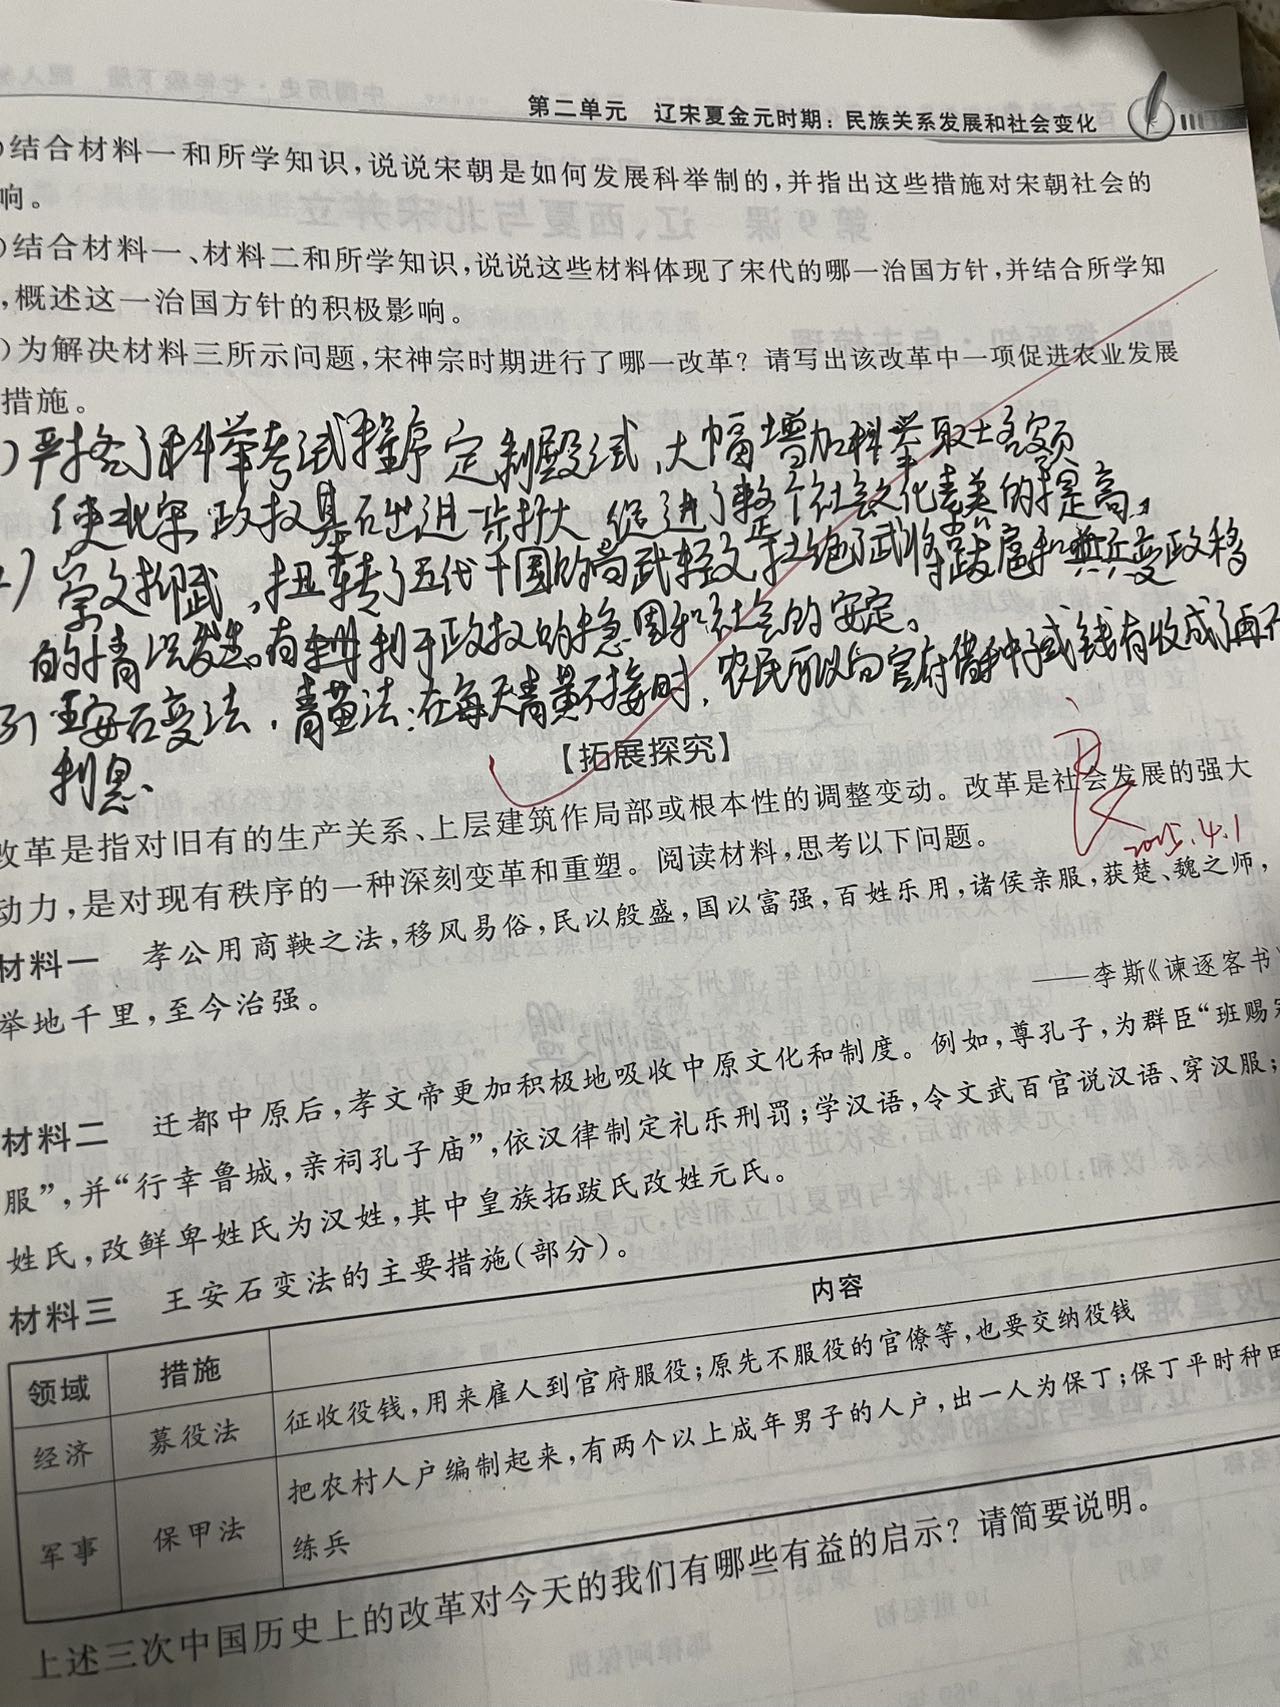 第二单元 辽宋夏金元时期：民族关系发展和社会变化
)结合材料一和所学知识，说说宋朝是如何发展科举制的，并指出这些措施对宋朝社会的
响。
)结合材料一、材料二和所学知识，说说这些材料体现了宋代的哪一治国方针，并结合所学知
，概述这一治国方针的积极影响。
)为解决材料三所示问题，宋神宗时期进行了哪一改革？请写出该改革中一项促进农业发展
措施。
)严格了科举考试程序定制殿试、大幅增加科举取士名额
使北宋政权基石出进一步扩大。促进了整个社会文化素养的提高。
2)崇文抑武，扭转了五代十国的尚武轻文，杜绝了武将跋扈和兵变政移
的情况发生。有利于政权的稳固和社会的安定。
3)王安石变法，青苗法：在每天青黄不接时，农民可以向官府借种子或钱有收成了再
利息、
【拓展探究】
良
2025.4.1
改革是指对旧有的生产关系、上层建筑作局部或根本性的调整变动。改革是社会发展的强大
动力，是对现有秩序的一种深刻变革和重塑。阅读材料，思考以下问题。
材料一 孝公用商鞅之法，移风易俗，民以殷盛，国以富强，百姓乐用，诸侯亲服，获楚、魏之师，
举地千里，至今治强。
——李斯《谏逐客书》
材料二 迁都中原后，孝文帝更加积极地吸收中原文化和制度。例如，尊孔子，为群臣“班赐冠
服”，并“行幸鲁城，亲祠孔子庙”，依汉律制定礼乐刑罚；学汉语，令文武百官说汉语、穿汉服；
姓氏，改鲜卑姓氏为汉姓，其中皇族拓跋氏改姓元氏。
材料三 王安石变法的主要措施（部分）。
领域 措施 内容
经济 募役法 征收役钱，用来雇人到官府服役；原先不服役的官僚等，也要交纳役钱
军事 保甲法 把农村人户编制起来，有两个以上成年男子的人户，出一人为保丁；保丁平时种田
练兵
上述三次中国历史上的改革对今天的我们有哪些有益的启示？请简要说明。